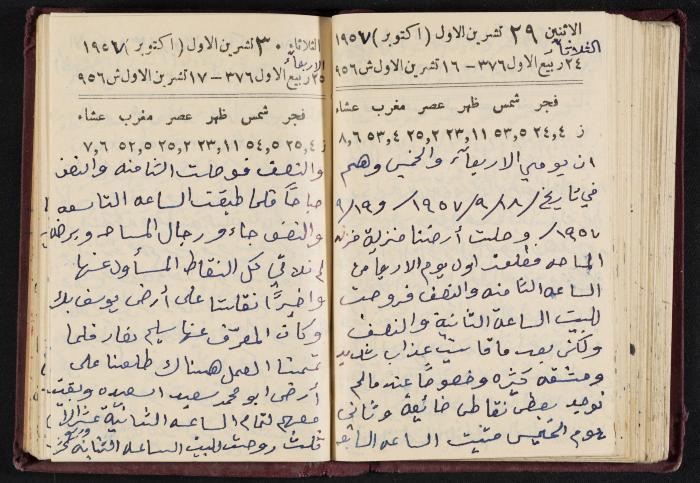 الاثنين ٢٩ تشرين الاول (اكتوبر) ١٩٥٧
الثلاثاء
٢٤ ربيع الاول ٣٧٦ – ١٦ تشرين الاول ش ٩٥٦
فجر شمس ظهر عصر مغرب عشاء
ز ٢٤,٤ ٥٣,٥ ٢٣,١١ ٢٥,٢ ٥٣,٤ ٨,٦
ان يومي الاربعاء والخميس وهم
في تاريخ ١٨/٩/١٩٥٧/ و ١٩/٩/
١٩٥٧/. وصلت أرضنا منزية
المساحه فطلعت اول يوم الاربعا من
الساعه الثامنه والنصف فروحت
للبيت الساعة الثانية والنصف
ولكن بعد ما قاسيت عذاب شديد
ومشقه كثيره وخصوصاً عندما لم
نوجد بعض نقاط ضائعة وثاني
يوم الخميس الساعه السابعه
الثلاثاء ٣٠ تشرين الاول (اكتوبر) ١٩٥٧
الاربعاء
٢٥ ربيع الاول ٣٧٦ – ١٧ تشرين الاول ش ٩٥٦
فجر شمس ظهر عصر مغرب عشاء
ز ٢٥,٤ ٥٤,٥ ٢٣,١١ ٢٥,٢ ٥٢,٥ ٧,٦
والنصف فوصلت الثامنه والنصف
صباحاً فلما طبقت الساعه التاسعه
والنصف جاءو رجال المساحه وبرضه
لم نلاقي كل النقاط المسأول عنها
واخيراً نقلنا على أرض يوسف
وكان المعرّف عنها سليم نصار فلما
تممنا العمل هناك طلعنا على
أرض ابو محمد سعيد السعيده وبقيت
معهم لتمام الساعه الثانية عشر
ثلث روحت للبيت الساعه الثانيه